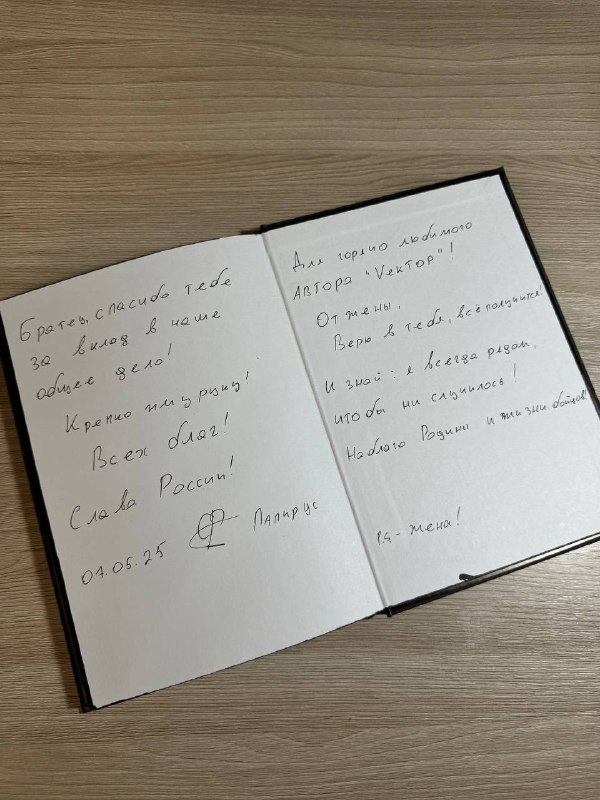 Братец, спасибо тебе
за вклад в наше
общее дело!
Крепко жму руку!
Всех благ!
Слава России!
07.05.25 Папирус
Для горячо любимого
АВТОРА "Vектор"!
От жены.
Верю в тебя, всё получится!
И знай - я всегда рядом,
что бы ни случилось!
На благо Родины и жизни бойцов!
P.S - жена!